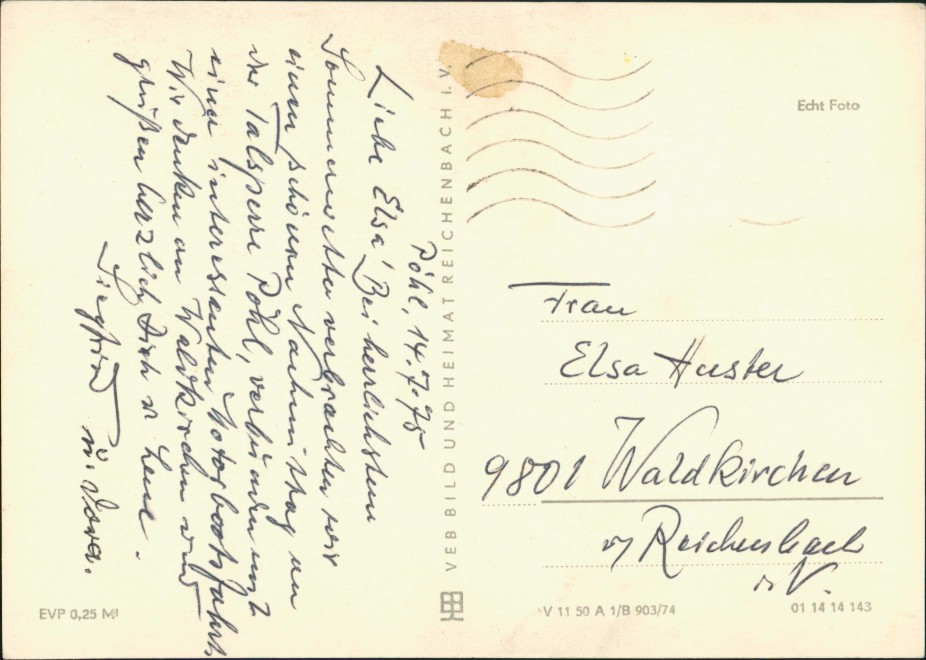 Pöhl, 14.7.75
Liebe Elsa! Bei herrlichstem
Sommerwetter verbrachten wir
einen schönen Nachmittag an
der Talsperre Pöhl, verbunden mit
einer interessanten Motorbootsfahrt.
Wir denken an Waldkirchen und
grüßen herzlich Dich u Lene.
Siegfried
u. Dora.
VEB BILD UND HEIMAT REICHENBACH I. V.
Echt Foto
Frau
Elsa Huster
9801 Waldkirchen
Reichenbach
i. V.
EVP 0,25 M
V 11 50 A 1/B 903/74
01 14 14 143